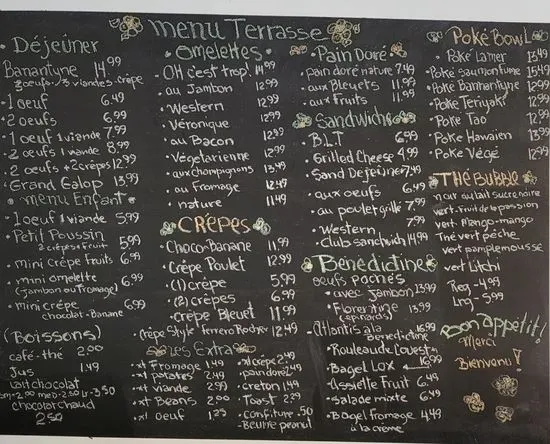 menu Terrasse
• Déjeûner
Banantyne 14.99
2oeufs / 3 viandes - crêpe
• 1 oeuf 6.49
• 2 oeufs 6.99
• 1 oeuf 1 viande 7.99
• 2 oeufs 1 viande 8.99
• 2 oeufs +2 crêpes 12.99
• Grand Galop 13.99
• menu Enfant •
• 1 oeuf 1 viande 5.99
• Petit Poussin 5.99
2 crêpes + fruit
• mini crêpe fruits 6.99
• mini omelette 6.99
(Jambon ou fromage)
• mini crêpe 6.99
chocolat-Banane
(Boissons)
café-thé 2.00
Jus 1.49
Lait chocolat
sm-2.00 med-2.50 L-3.50
chocolat chaud
2.50
• Omelettes •
• OH c'est trop! 14.99
• au Jambon 12.99
• Western 12.99
• Véronique 12.99
• au Bacon 12.99
• Végétarienne 12.99
• aux champignons 13.49
• au fromage 12.49
• nature 11.49
CRÊPES
• Choco-Banane 11.99
• Crêpe Poulet 12.99
• (1) crêpe 5.99
• (2) crêpes 6.99
• Crêpe Bleuet 11.99
• Crêpe Style "ferrero Rocher" 12.49
Les Extra
• xt fromage 1.49
• xt patates 2.49
• xt viande 2.99
• xt Beans 2.00
• xt oeuf 1.25
• xt crêpe 2.49
• pain doré 2.49
• creton 1.49
• Toast 2.29
• Confiture .50
- Beurre peanut
• Pain Doré
• pain doré nature 7.49
• aux Bleuets 11.99
• aux fruits 11.99
Sandwichs
• B.L.T 6.99
• Grilled Cheese 4.99
• Sand Dejeûner 7.49
• aux oeufs 6.49
• au poulet grillé 7.99
• Western 7.99
• Club sandwich 14.99
Bénédictine
oeufs pochés
• avec Jambon 13.99
• Florentine 13.99
(épinards)
• Atlantis à la 16.99
Bénédictine
• Rouleau de l'ouest
• Bagel Lox 16.99
• Assiette Fruit 6.49
• salade mixte 6.49
• Bagel fromage 4.49
à la crème
Poké Bowl
• Poké Lamer 15.49
• Poké saumon fumé 15.49
• Poké Bannantyne 12.99
• Poké Teriyaki 12.99
• Poké Tao 12.99
• Poke Hawaien 13.99
• Poké Végé 12.99
THÉ BUBBLE
noir au lait sucre noire
vert-fruit de la passion
vert Mango-mango
Thé vert pêche
vert pamplemousse
vert Litchi
Reg - 4.99
Lrg - 5.99
Bon appétit!
Merci
Bienvenu!